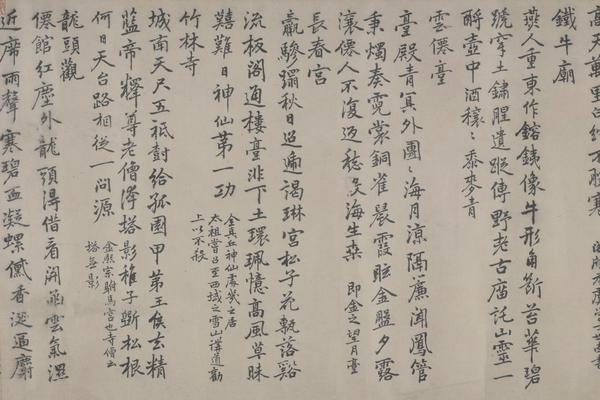 高天萬里白紵不勝寒
鐵牛廟
燕人重東作鎔鐵像牛形角斷苔華碧
蹄穿土鏽腥遺蹤傳野老古廟託山靈一
酹壺中酒穰〻黍麥青
雲僊臺
臺殿青冥外團〻海月涼隔簾聞鳳管
秉燭奏霓裳銅雀晨霞眩金盤夕露
瀼僊人不復返愁海生桑 即金之望月臺
長春宮
羸驂躡秋日迢遞謁琳宮松子花孰落谿
流板閣通樓臺非下土環珮憶高風草昧
囏難日神仙第一功
全真丘神仙處機之居
太祖嘗召至西域之雪山講道勸
上以不殺
竹林寺
城南天尺五祗樹給孤園甲第王侯去精
藍帝釋尊老僧浮塔影稚子斲松根
何日天台路相從一問源
金熙宗駙馬宮也寺僧云
塔無影
龍頭觀
僊館紅塵外龍頭得借看開雲氣濕
近席雨聲寒碧血凝螺黛香涎通麝